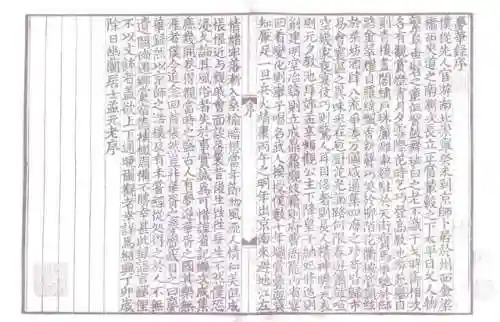 夢華錄序
僕從先人宦游南北崇寧癸未到京師卜居於州西金梁
橋西夾道之南漸次長立正當輦轂之下太平日久人物
繁阜垂髫之童但習鼓舞班白之老不識干戈時節相次
各有觀賞燈宵月夕雪際花時乞巧登高教池游苑舉目
則青樓畫閣繡戶珠簾雕車競駐於天街寶馬爭馳於御
路金翠耀目羅綺飄香新聲巧笑於柳陌花衢按管調絃
於茶坊酒肆八荒爭湊萬國咸通集四海之珍奇皆歸市
易會寰區之異味悉在庖廚花光滿路何限春遊簫鼓喧
空幾家夜宴伎巧則驚人耳目侈奢則長人精神瞻天表
則元夕教池拜郊孟享頻觀公主下降皇子納妃修造則
創建明堂冶鑄則立成鼎鼐觀妓籍則府曹衙罷內省宴
回看變化則舉子唱名武人換授僕數十年爛賞疊遊莫
知厭足一旦兵火靖康丙午之明年出京南來避地江左
序
情緒牢落漸入桑榆暗想當年節物風流人情和美但成
悵恨近與親戚會面談及曩昔後生往往妄生不然僕恐
浸久論其風俗者失於事實誠為可惜謹省記編次成集
庶幾開卷得睹當時之盛古人有夢遊華胥之國其樂無
涯者僕今追念回首悵然豈非華胥之夢覺哉目之曰夢
華錄然以京師之浩穰及有未嘗經從處得之於人不無
遺闕倘遇鄉黨宿德補綴周備不勝幸甚此錄語言鄙俚
不以文飾者蓋欲上下通曉爾觀者幸詳焉紹興丁卯歲
除日幽蘭居士孟元老序